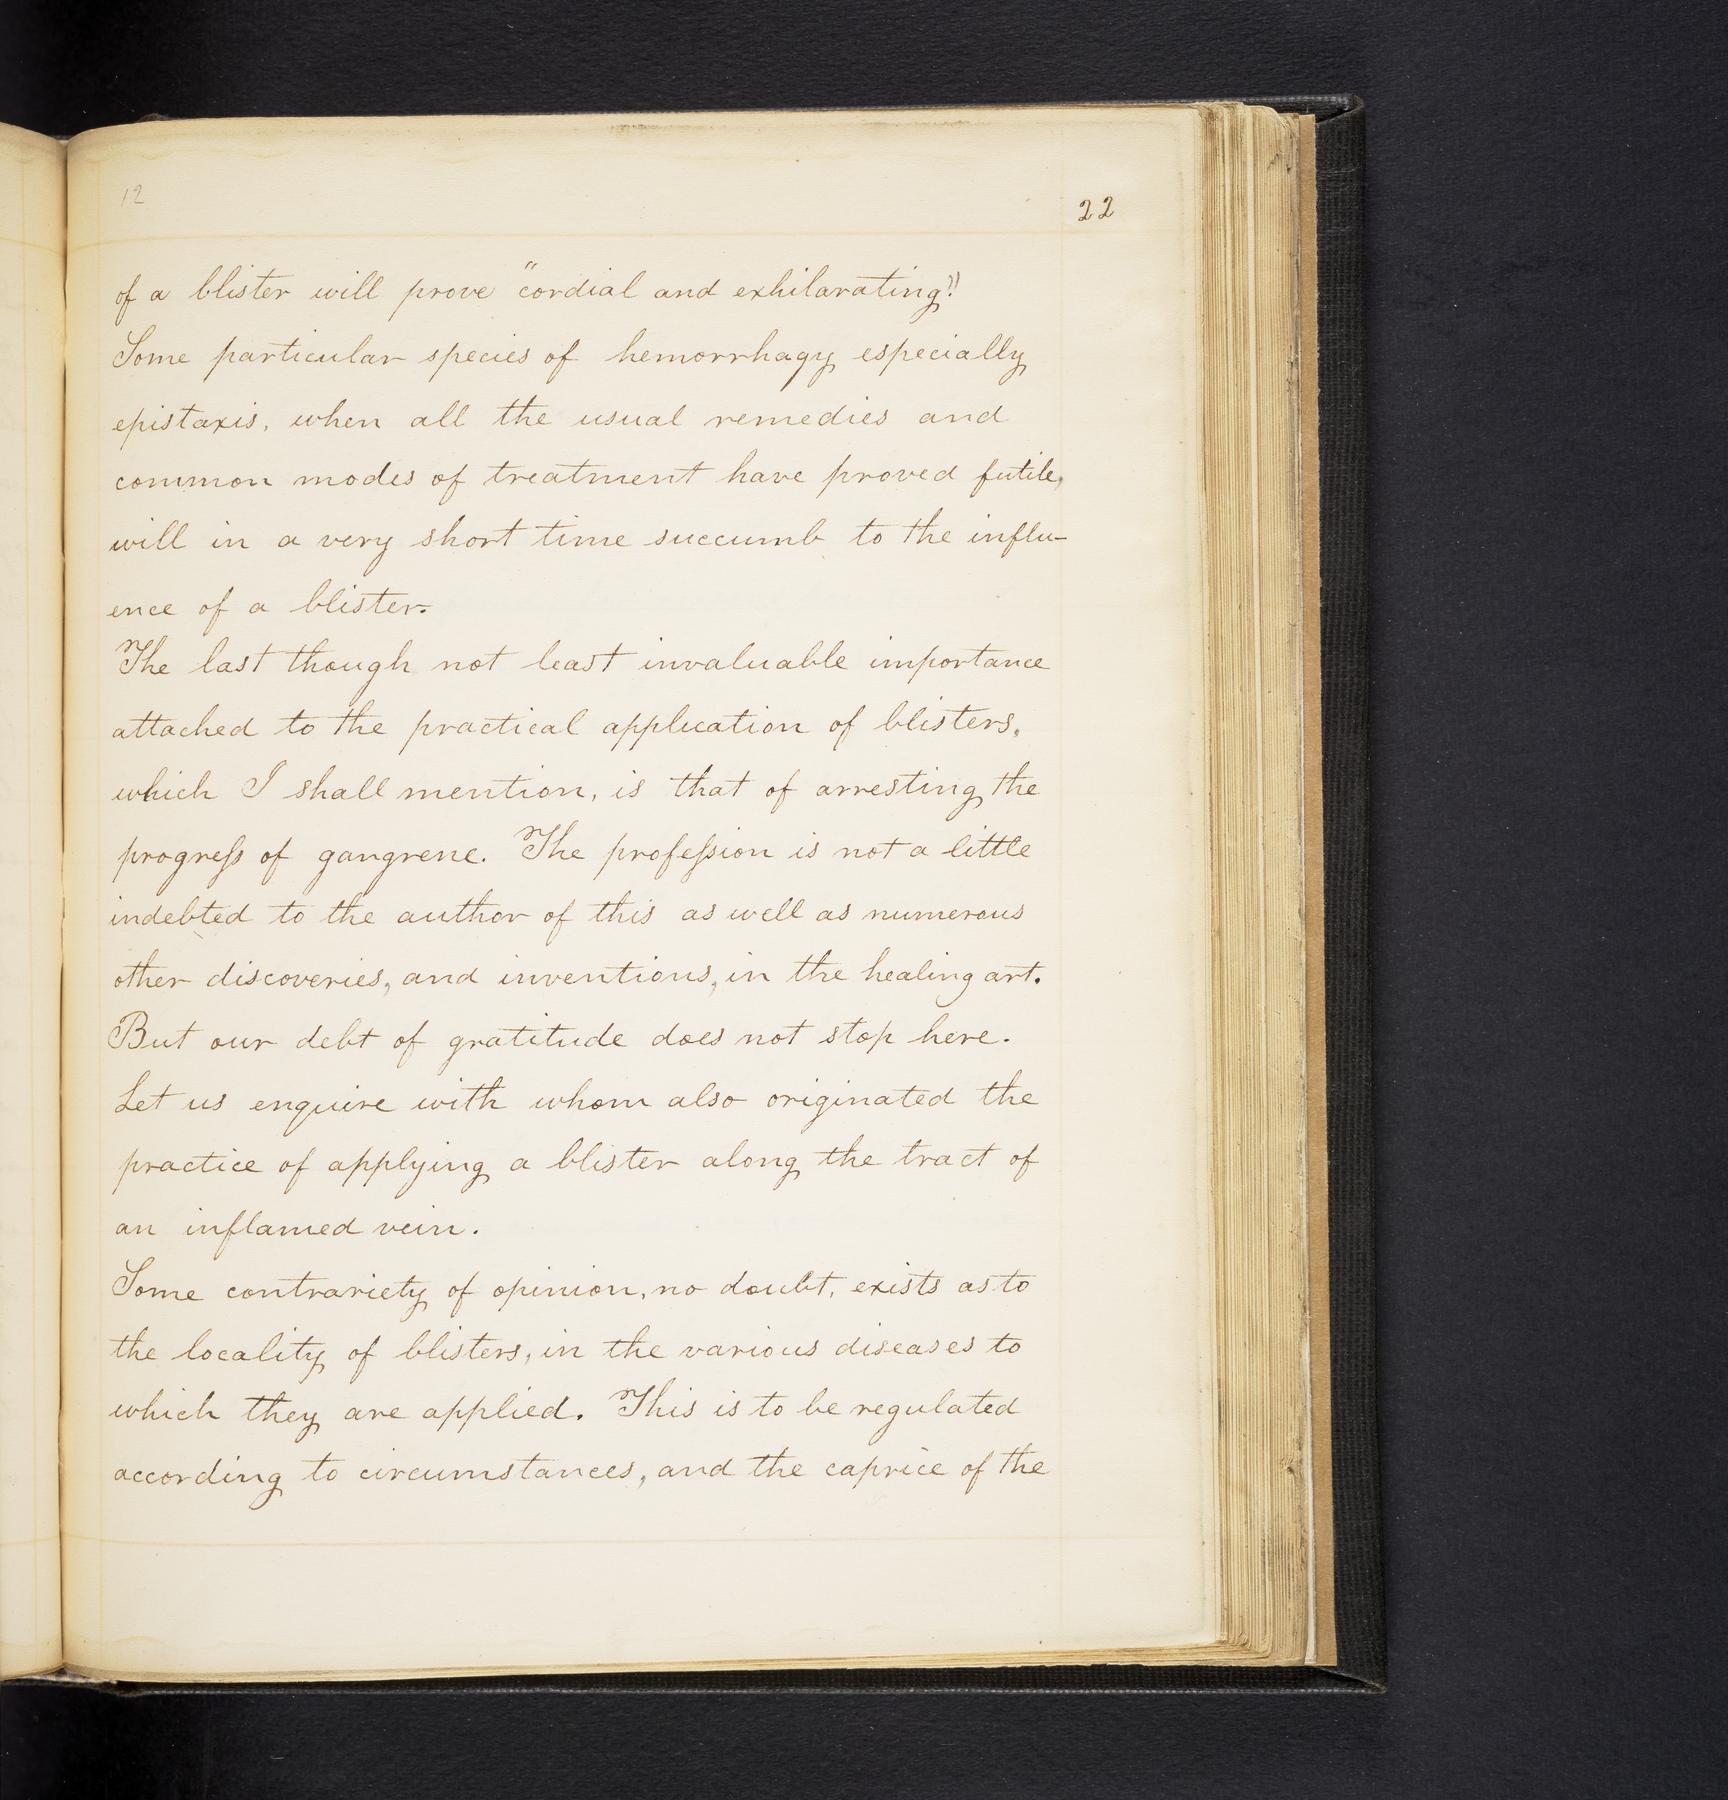 12
22
of a blister will prove "cordial and exhilarating."
Some particular species of hemorrhagy especially
epistaxis, when all the usual remedies and
common modes of treatment have proved futile,
will in a very short time succumb to the influ-
ence of a blister.
The last though not least invaluable importance
attached to the practical application of blisters,
which I shall mention, is that of arresting the
progreſs of gangrene. The profeſsion is not a little
indebted to the author of this as well as numerous
other discoveries, and inventions, in the healing art.
But our debt of gratitude does not stop here.
Let us enquire with whom also originated the
practice of applying a blister along the tract of
an inflamed vein.
Some contrariety of opinion, no doubt, exists as to
the locality of blisters, in the various diseases to
which they are applied. This is to be regulated
according to circumstances, and the caprice of the